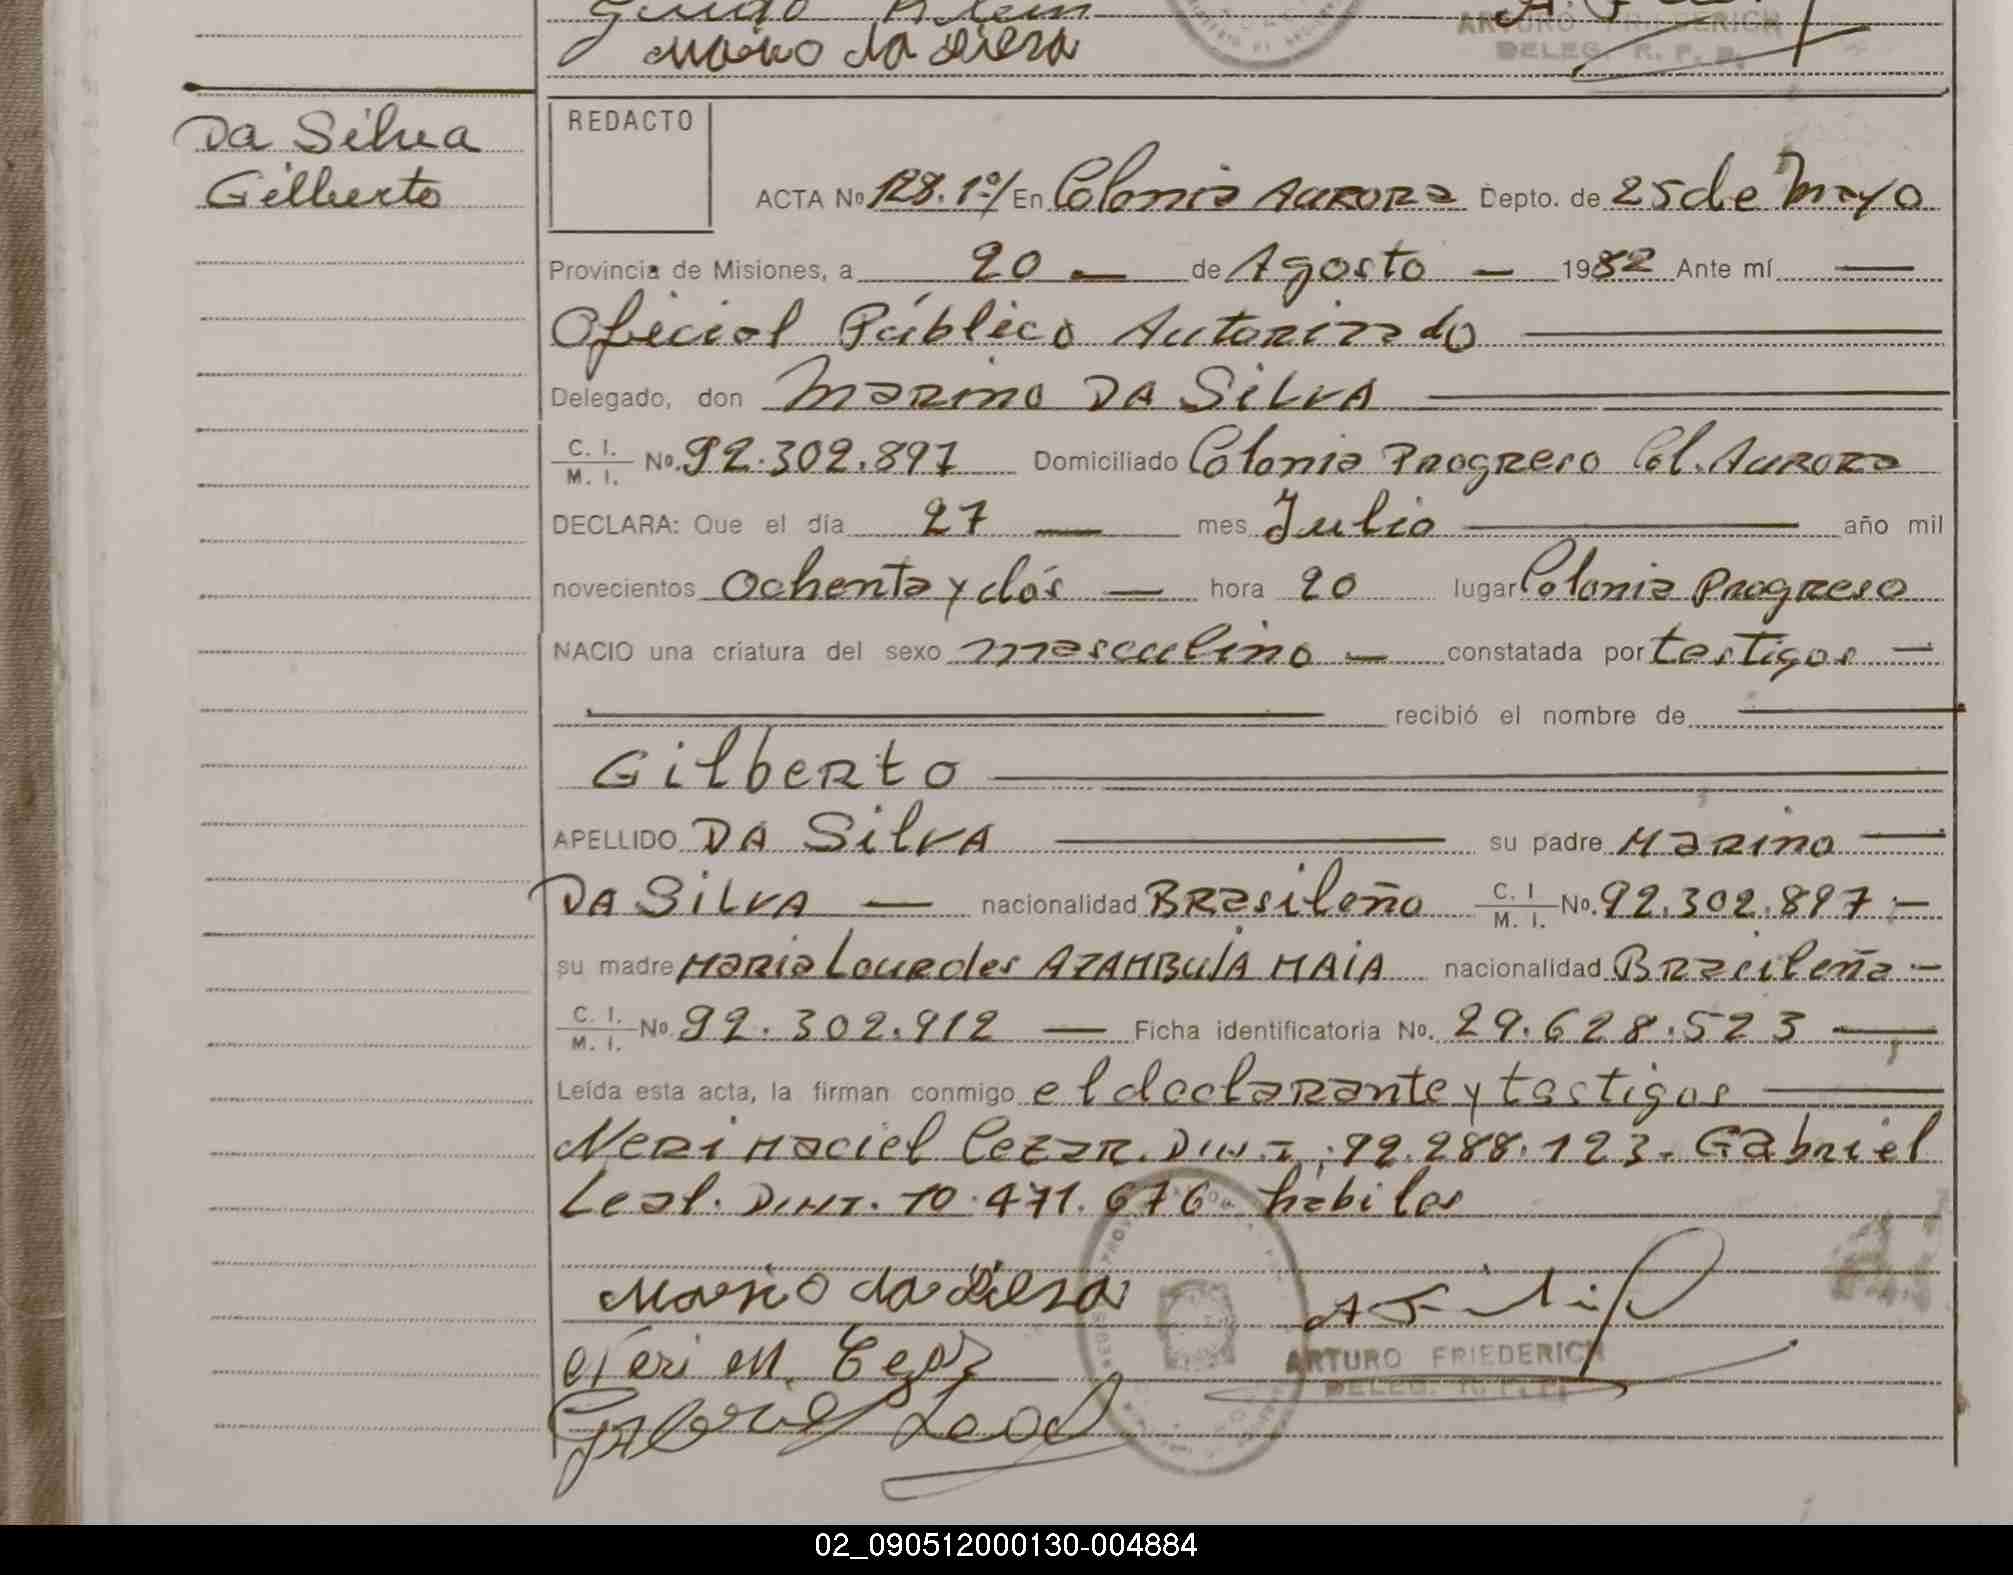 Guido Klein
Marino da Silva
ARTURO FRIEDERICH
DELEG. R. P. P.
Da Silva
Gilberto
REDACTO
ACTA Nº 128.1º/ En Colonia Aurora Depto. de 25 de Mayo
Provincia de Misiones, a 20 — de Agosto — 1982 Ante mí —
Oficial Público Autorizado
Delegado, don Marino DA SILVA
C. I. / M. I. Nº. 92.302.897 Domiciliado Colonia Progreso Col. Aurora
DECLARA: Que el día 27 — mes Julio — año mil
novecientos Ochenta y dós — hora 20 lugar Colonia Progreso
NACIO una criatura del sexo masculino — constatada por testigos —
recibió el nombre de
Gilberto
APELLIDO DA SilVA — su padre Marino —
DA SILVA — nacionalidad Brasileño C. I / M. I. Nº. 92.302.897 —
su madre Maria Lourdes AZAMBUJA MAIA nacionalidad Brasileña —
C. I. / M. I. Nº 92.302.912 — Ficha identificatoria Nº. 29.628.523 —
Leída esta acta, la firman conmigo el declarante y testigos —
Neri Maciel Cezar. D.N.I. 92.288.123. Gabriel
Leal. D.N.I. 10.471.676 hábiles
Marino da Silva
Neri M. Cezar
ARTURO FRIEDERICH
DELEG. R. P. P.
Gabriel Leal
02_090512000130-004884